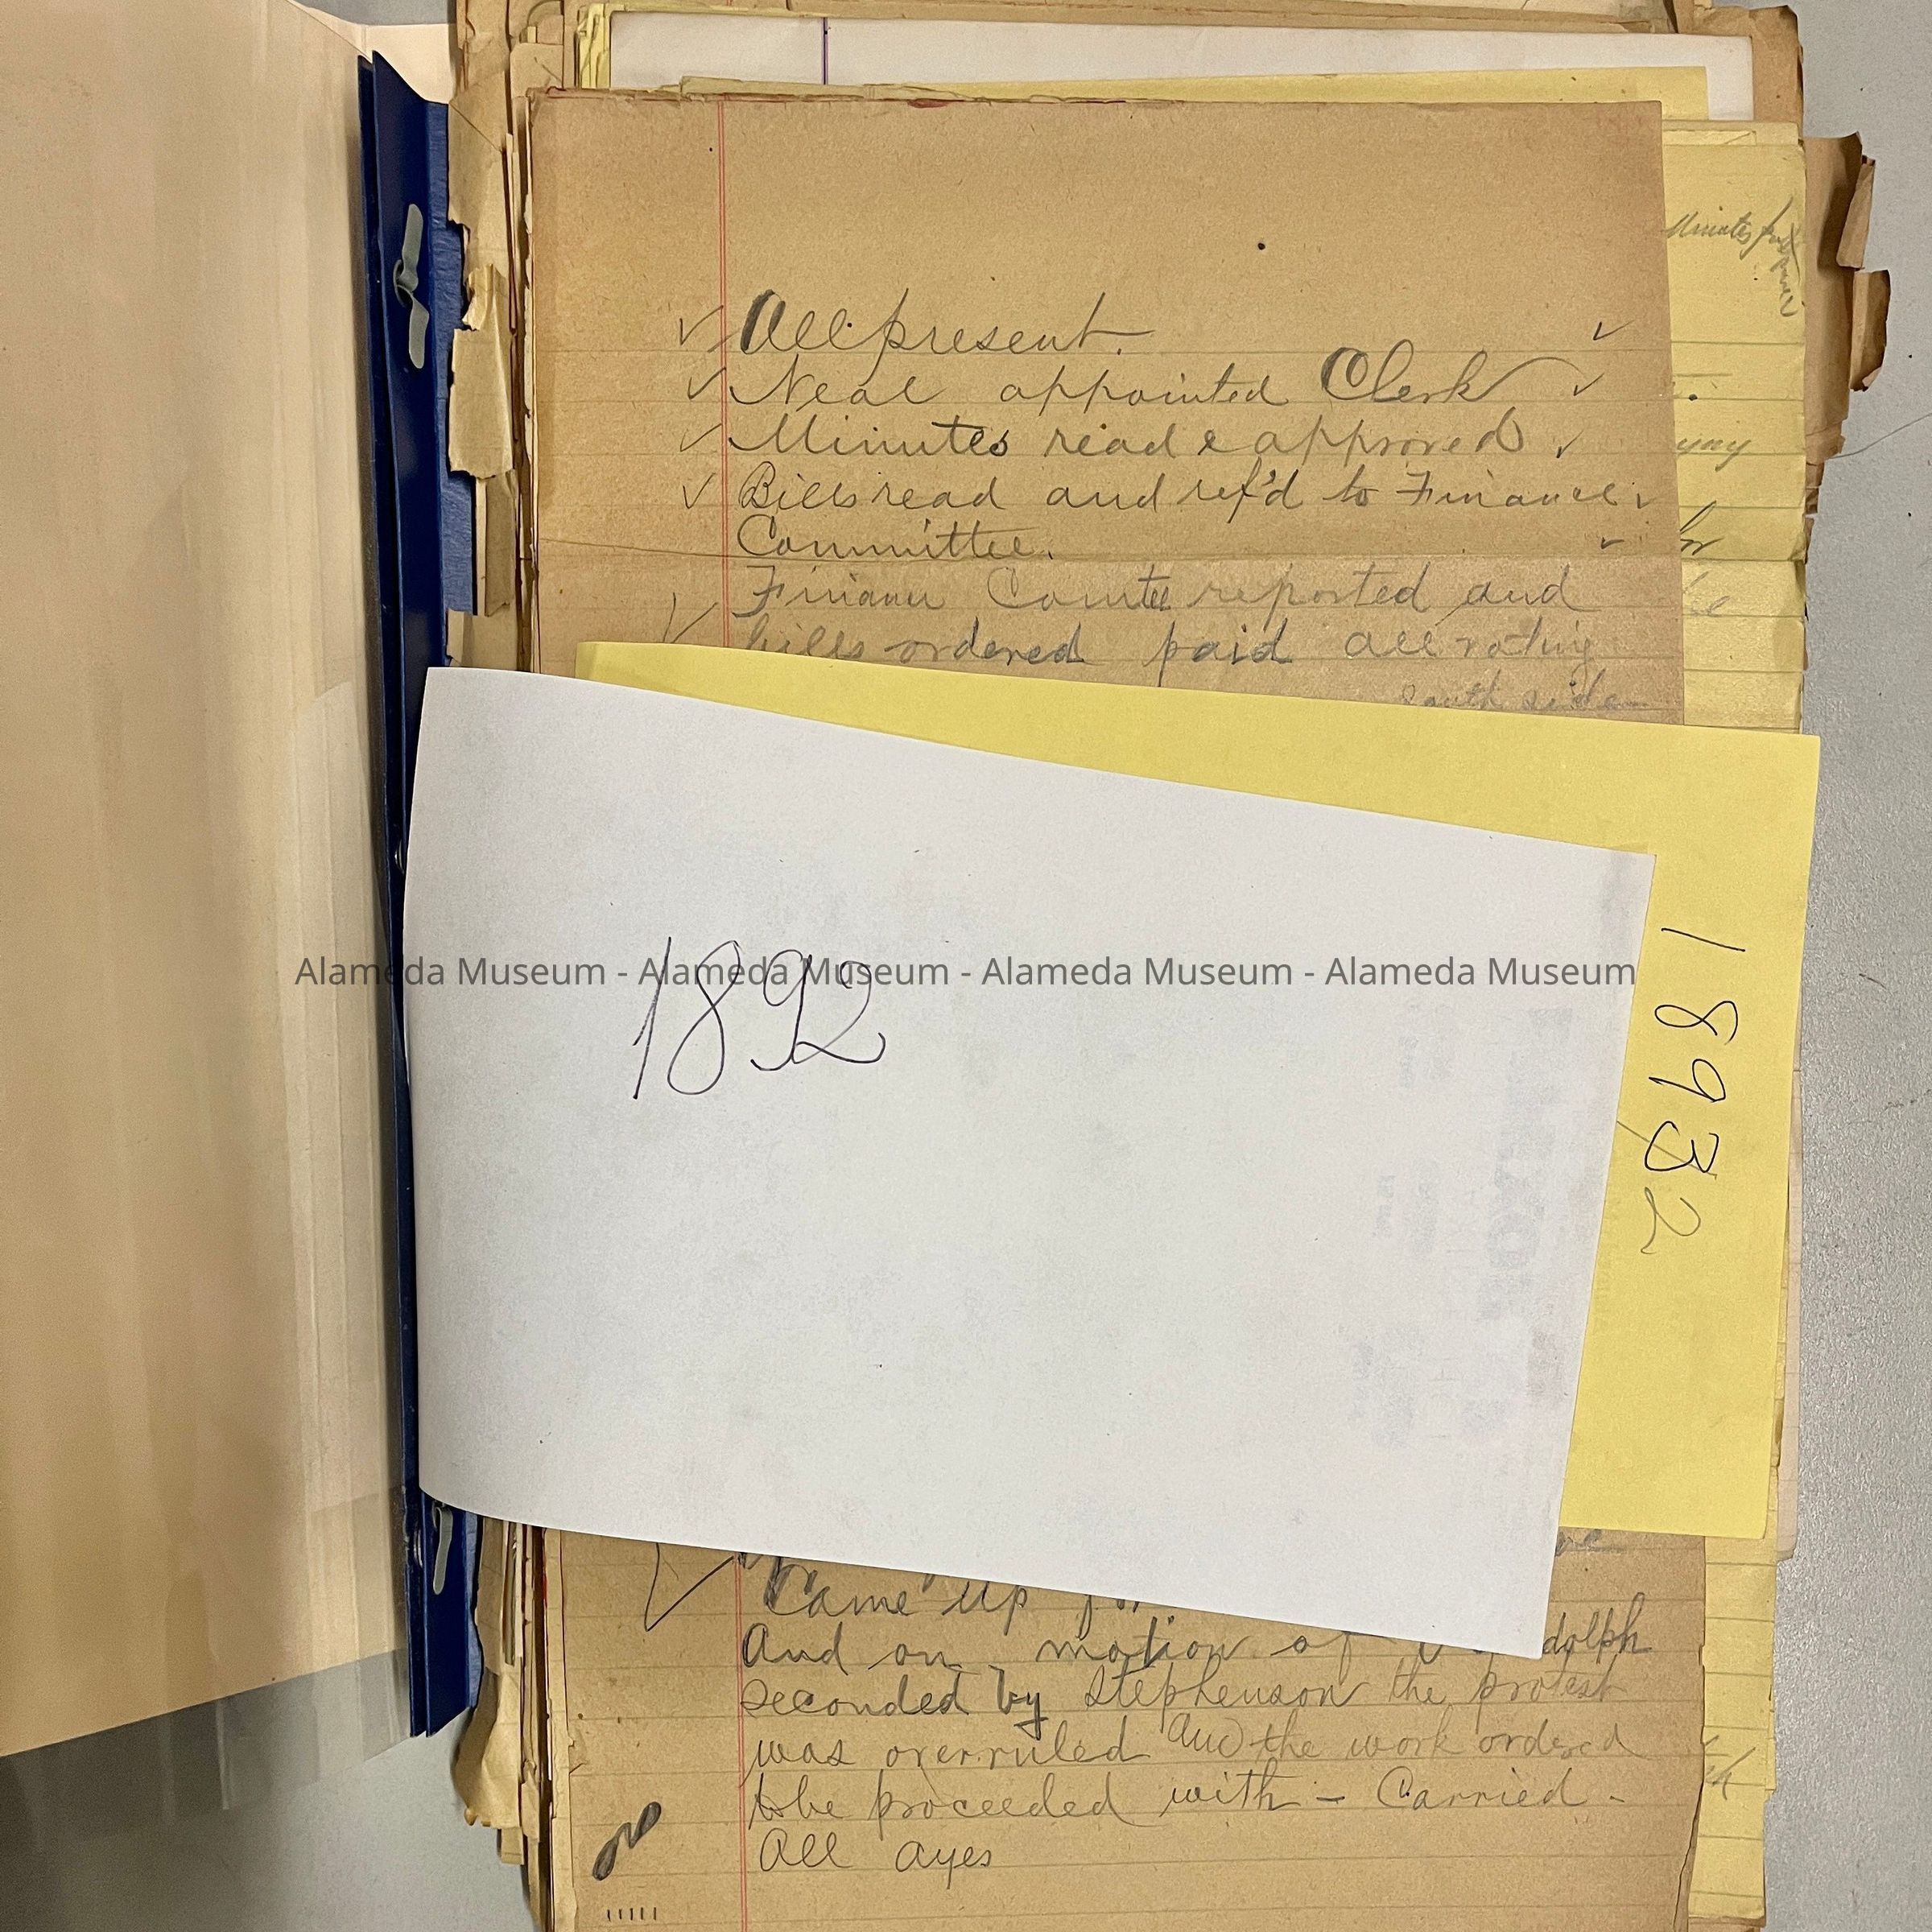 Minutes
All present.
Neal appointed Clerk
Minutes read & approved
Bills read and ref'd to Finance
Committee.
Finance Comtee reported and
bills ordered paid all voting
South side
Alameda Museum - Alameda Museum - Alameda Museum - Alameda Museum
1892
18932
Came up for
And on motion of dolph
seconded by Stephenson the protest
was overruled and the work ordered
to be proceeded with - Carried -
All ayes